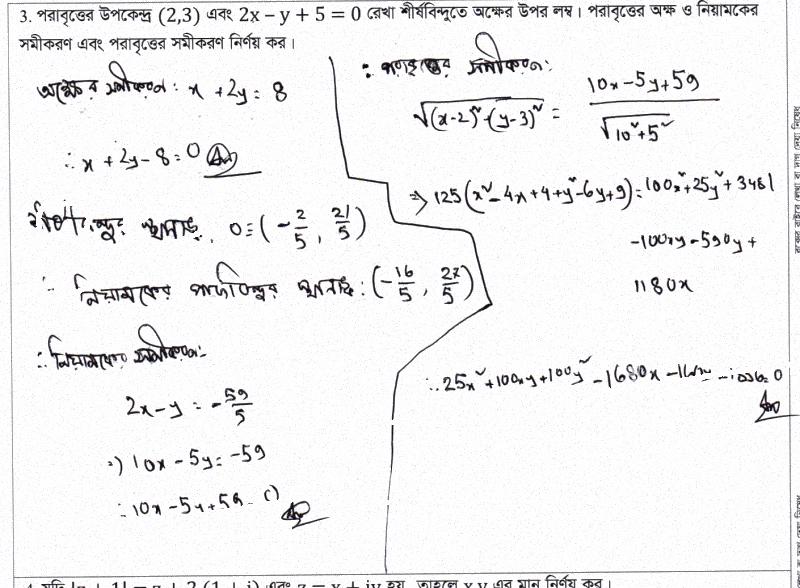 3. পরাবৃত্তের উপকেন্দ্র (2,3) এবং 2x – y + 5 = 0 রেখা শীর্ষবিন্দুতে অক্ষের উপর লম্ব। পরাবৃত্তের অক্ষ ও নিয়ামকের
সমীকরণ এবং পরাবৃত্তের সমীকরণ নির্ণয় কর।
অক্ষের সমীকরণ: x + 2y = 8
∴ x + 2y - 8 = 0 Ans
শীর্ষবিন্দুর স্থানাঙ্ক, 0 ≡ (-2/5, 21/5)
∴ নিয়ামকের পাদবিন্দুর স্থানাঙ্ক: (-16/5, 27/5)
∴ নিয়ামকের সমীকরণ:
2x - y = -59/5
⇒) 10x - 5y = -59
∴ 10x - 5y + 59 = 0 Ans
∴ পরাবৃত্তের সমীকরণ:
√((x-2)² + (y-3)²) = (10x - 5y + 59)/√(10² + 5²)
⇒ 125(x² - 4x + 4 + y² - 6y + 9) = 100x² + 25y² + 3481
-100xy - 590y +
1180x
∴ 25x² + 100xy + 100y² - 1680x
= 0
Ans